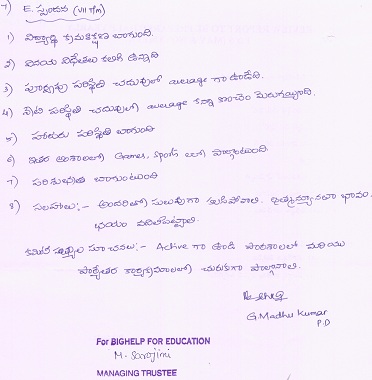 7) E. స్పందన (VII T/m)
1) విద్యార్థి క్రమశిక్షణ బాగుంది.
2) వినయ విధేతలు కలిగి ఉన్నాది
3) పూర్వపు పరిస్థితి చదువులో average గా ఉండేది.
4) నేటి పరిస్థితి చదువులో average కన్నా కొంచెం మెరుగయ్యింది.
5) హాజరు పరిస్థితి బాగుంది
6) ఇతర అంశాలలో Games, Sports లలో పాల్గొంటుంది.
7) పరిశుభ్రత బాగుంటుంది
8) సలహాలు:- అందరితో సులువుగా కలిసిపోవాలి. భావం,
భయం వదిలిపెట్టాలి.
కమిటి సభ్యుల సూచనలు:- Active గా ఉండి పాఠశాలలో మరియు
పాఠ్యేతర కార్యక్రమాలలో చురుకుగా పాల్గొనాలి.
G. Madhu Kumar
P.D
For BIGHELP FOR EDUCATION
M. Sarojini
MANAGING TRUSTEE